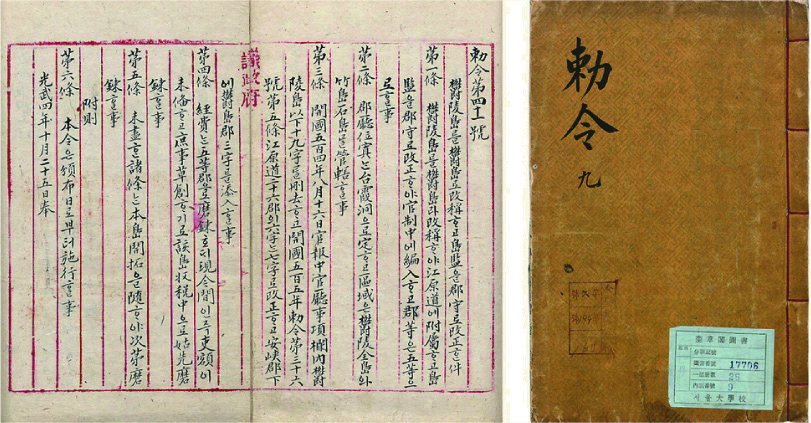 勅令第四十一號
鬱陵島를鬱島로改稱ᄒᆞ고島監을郡守로改正ᄒᆞᆫ件
第一條 鬱陵島를鬱島라改稱ᄒᆞ야江原道에附屬ᄒᆞ고島
監을郡守로改正ᄒᆞ야官制中에編入ᄒᆞ고郡等은五等으
로ᄒᆞᆯ事
第二條 郡廳位寘ᄂᆞᆫ台霞洞으로定ᄒᆞ고區域은鬱陵全島와
竹島石島를管轄ᄒᆞᆯ事
第三條 開國五百四年八月十六日官報中官廳事項欄內鬱
陵島以下十九字를刪去ᄒᆞ고開國五百五年勅令第三十六
號第五條江原道二十六郡의六字ᄂᆞᆫ七字로改正ᄒᆞ고安峽郡下
議政府
에鬱島郡三字를添入ᄒᆞᆯ事
第四條 經費ᄂᆞᆫ五等郡으로磨鍊호ᄃᆡ現今間인즉吏額이
未備ᄒᆞ고庶事草創ᄒᆞ기로該島收稅中으로姑先磨
鍊ᄒᆞᆯ事
第五條 未盡ᄒᆞᆫ諸條ᄂᆞᆫ本島開拓을隨ᄒᆞ야次第磨
鍊ᄒᆞᆯ事
附則
第六條 本令은頒布日로부터施行ᄒᆞᆯ事
光武四年十月二十五日奉
勅令 九
奎章閣圖書
17706
28
9
서울大學校